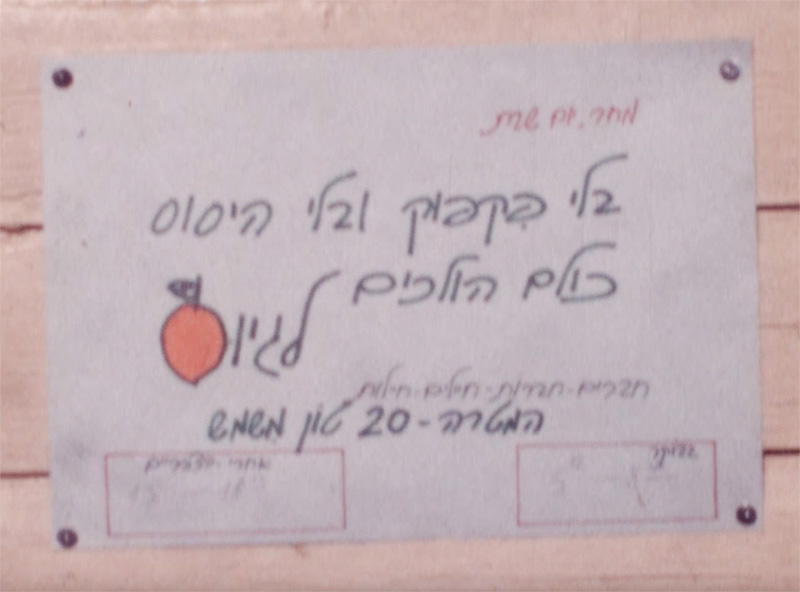 מחר, יום שישי
בלי פקפוק ובלי היסוס
כולם הולכים לגיוס
חברים - חברות - חיילים - חיילות
המטרה - 20 טון משמש
בבוקר
אחרי הצהריים